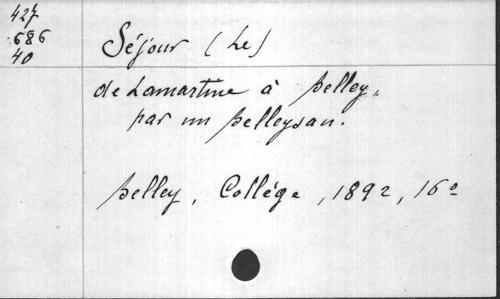 427
686
40
Séjour (Le)
de Lamartine à Belley,
par un Belleysan.
Belley, Collége, 1892, 16º